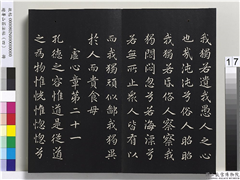 我獨若遺我愚人之心
也哉沌沌兮俗人昭昭
我獨若昏俗人察察我
獨悶悶忽兮若海漂兮
若無所止衆人皆有以
而我獨頑似鄙我獨異
於人而貴食母
虛心章第二十一
孔德之容惟道是從道
之為物惟恍惟惚惚兮
17